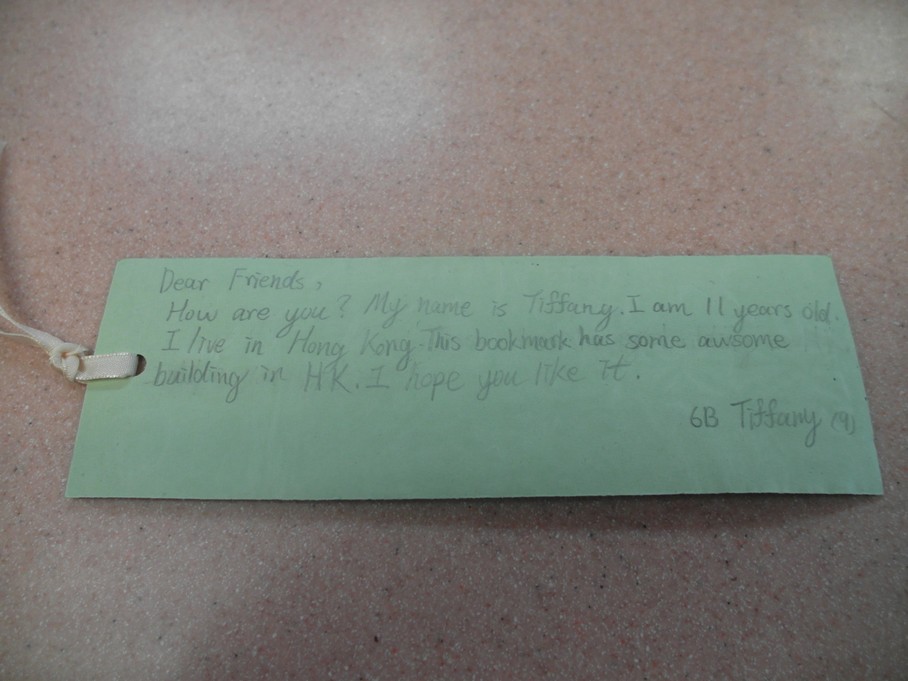 Dear Friends,
How are you? My name is Tiffany. I am 11 years old.
I live in Hong Kong. This bookmark has some awsome
building in HK. I hope you like it.
6B Tiffany (9)